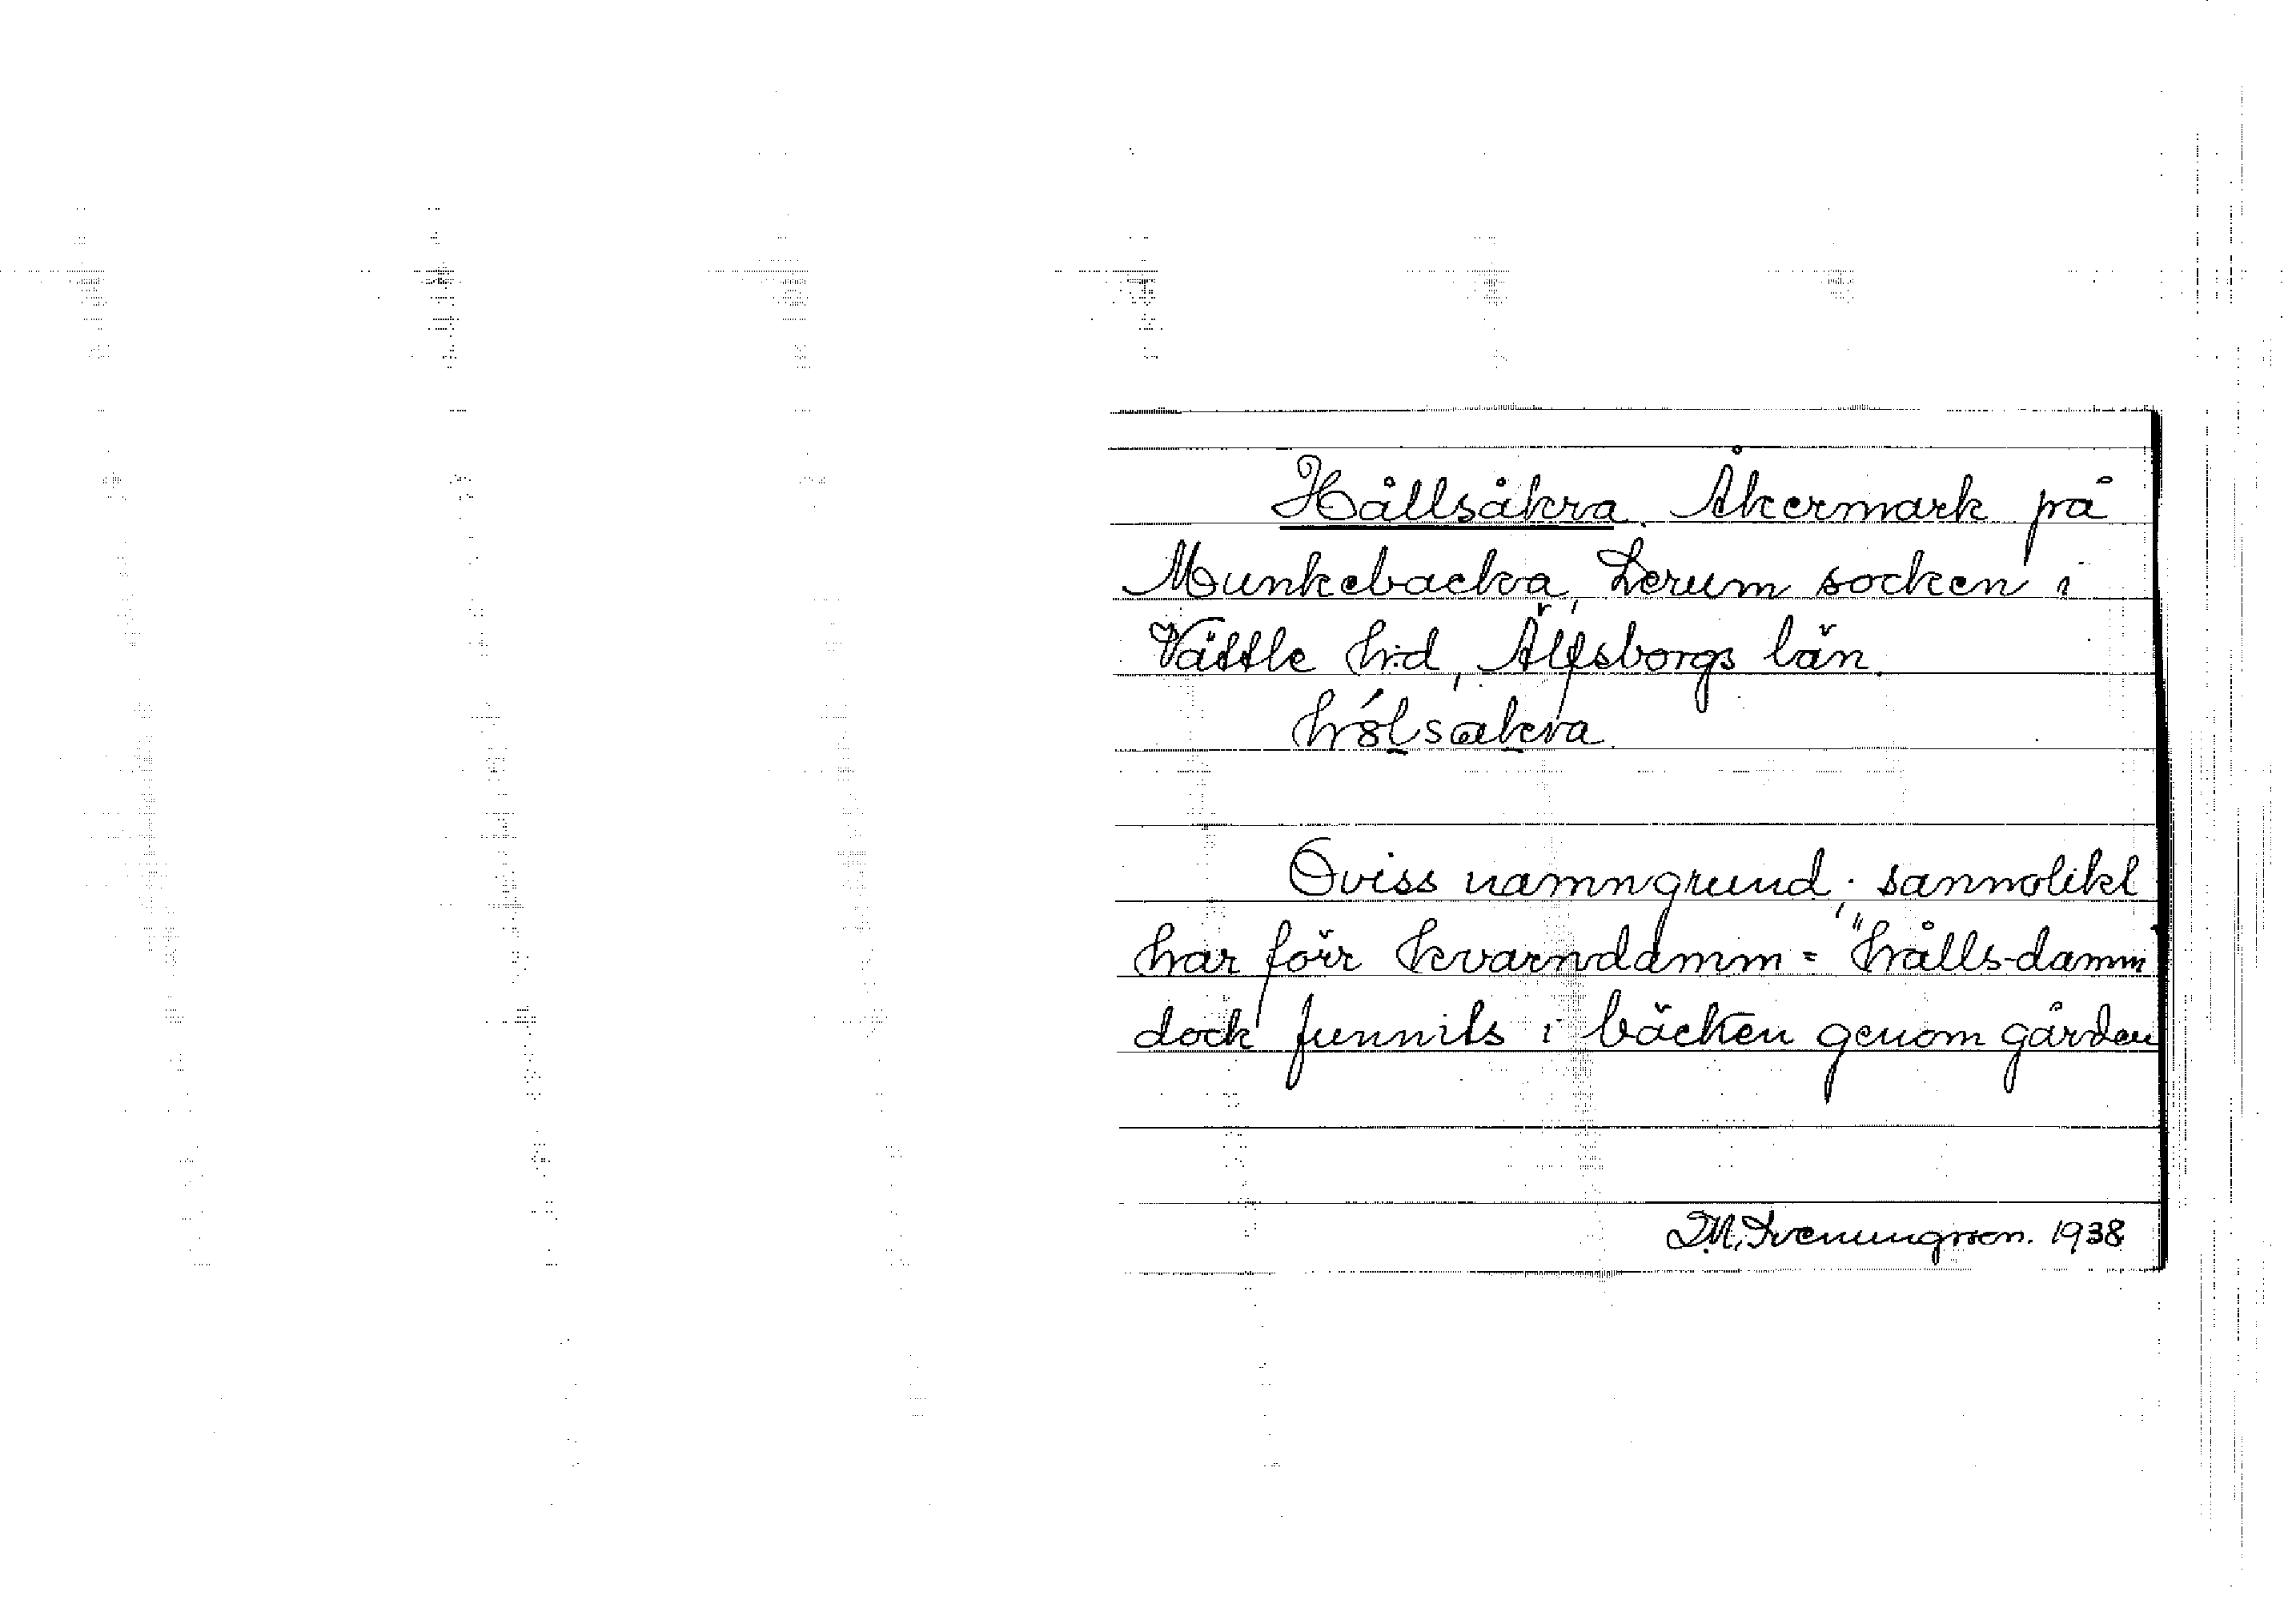 Hållsåkra. Åkermark på
Munkebacka, Lerum socken i
Vättle h:d, Älfsborgs län.
Oviss namngrund; sannolikt
har förr kvarndamm = "hålls-damm"
dock funnits i bäcken genom gården
D.M. Evenungsson. 1938